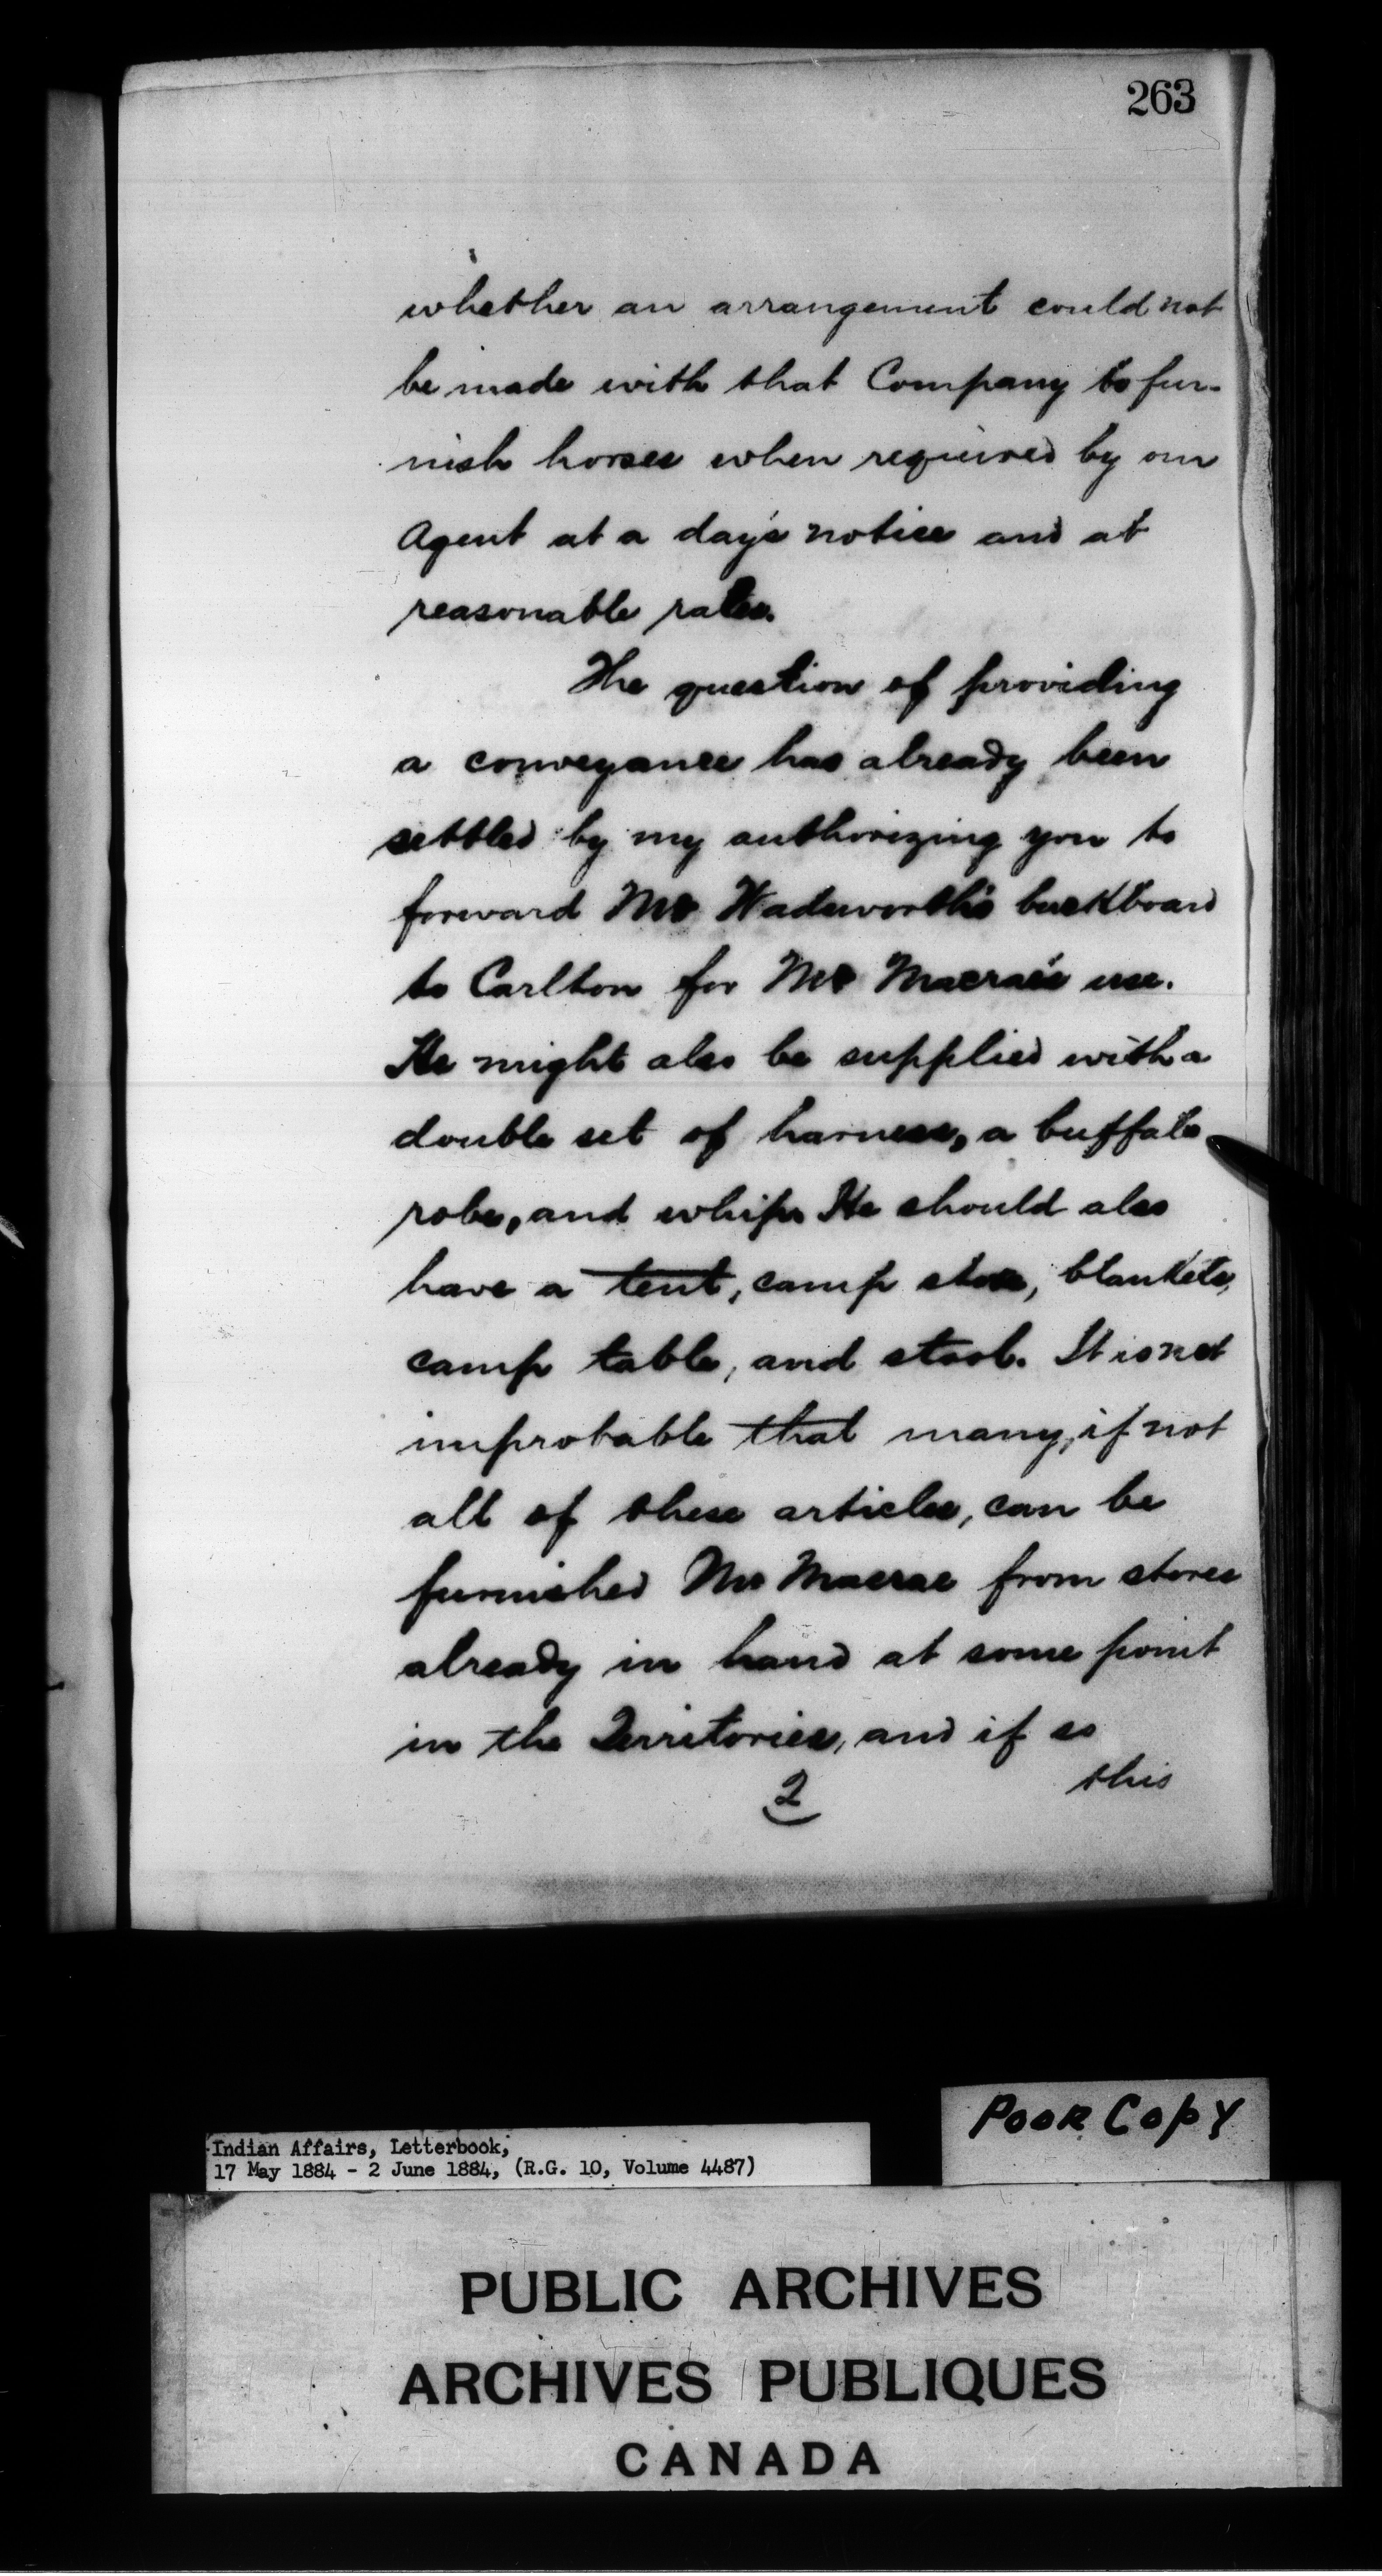 263
whether an arrangement could not
be made with that Company to fur-
nish horses when required by our
Agent at a day's notice and at
reasonable rates.
The question of providing
a conveyance has already been
settled by my authorizing you to
forward Mr Wadsworth's buckboard
to Carlton for Mr Macrae's use.
He might also be supplied with a
double set of harness, a buffalo
robe, and whip. He should also
have a tent, camp stove, blankets,
camp table, and stool. It is not
improbable that many, if not
all of these articles, can be
furnished Mr Macrae from stores
already in hand at some point
in the Territories, and if so
this
2
POOR COPY
Indian Affairs, Letterbook,
17 May 1884 - 2 June 1884, (R.G. 10, Volume 4487)
PUBLIC ARCHIVES
ARCHIVES PUBLIQUES
CANADA